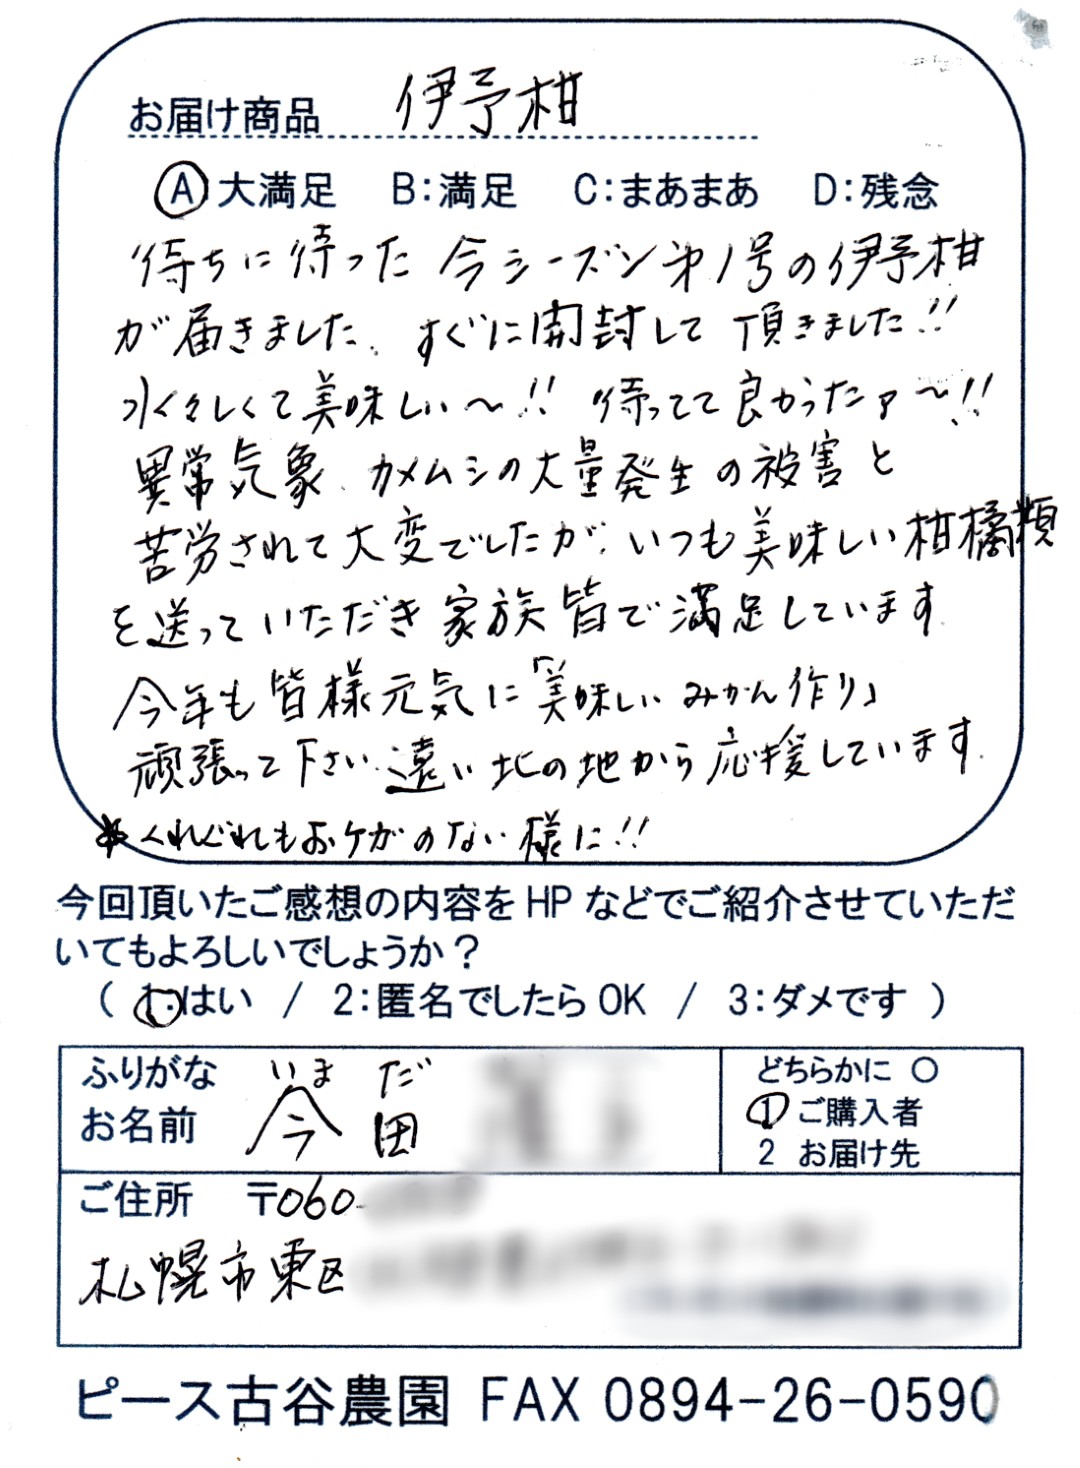 お届け商品 伊予柑
A 大満足 B:満足 C:まあまあ D:残念
待ちに待った今シーズン第1号の伊予柑
が届きました。すぐに開封して頂きました!!
水々しくて美味しい〜!! 待ってて良かったァ〜!!
異常気象、カメムシの大量発生の被害と
苦労されて大変でしたが、いつも美味しい柑橘類
を送っていただき家族皆で満足しています。
今年も皆様元気に「美味しいみかん作り」
頑張って下さい。遠い北の地から応援しています。
*くれぐれもおケガのない様に!!
今回頂いたご感想の内容をHPなどでご紹介させていただ
いてもよろしいでしょうか?
( 1:はい / 2:匿名でしたらOK / 3:ダメです )
ふりがな いまだ
お名前 今田
どちらかに ○
1 ご購入者
2 お届け先
ご住所 〒060-
札幌市東区
ピース古谷農園 FAX 0894-26-0590